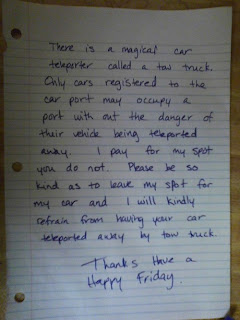 There is a magical car
teleporter called a tow truck.
Only cars registered to the
car port may occupy a
port with out the danger of
their vehicle being teleported
away. I pay for my spot
you do not. Please be so
kind as to leave my spot for
my car and I will kindly
refrain from having your car
teleported away by tow truck.
Thanks Have a
Happy Friday.